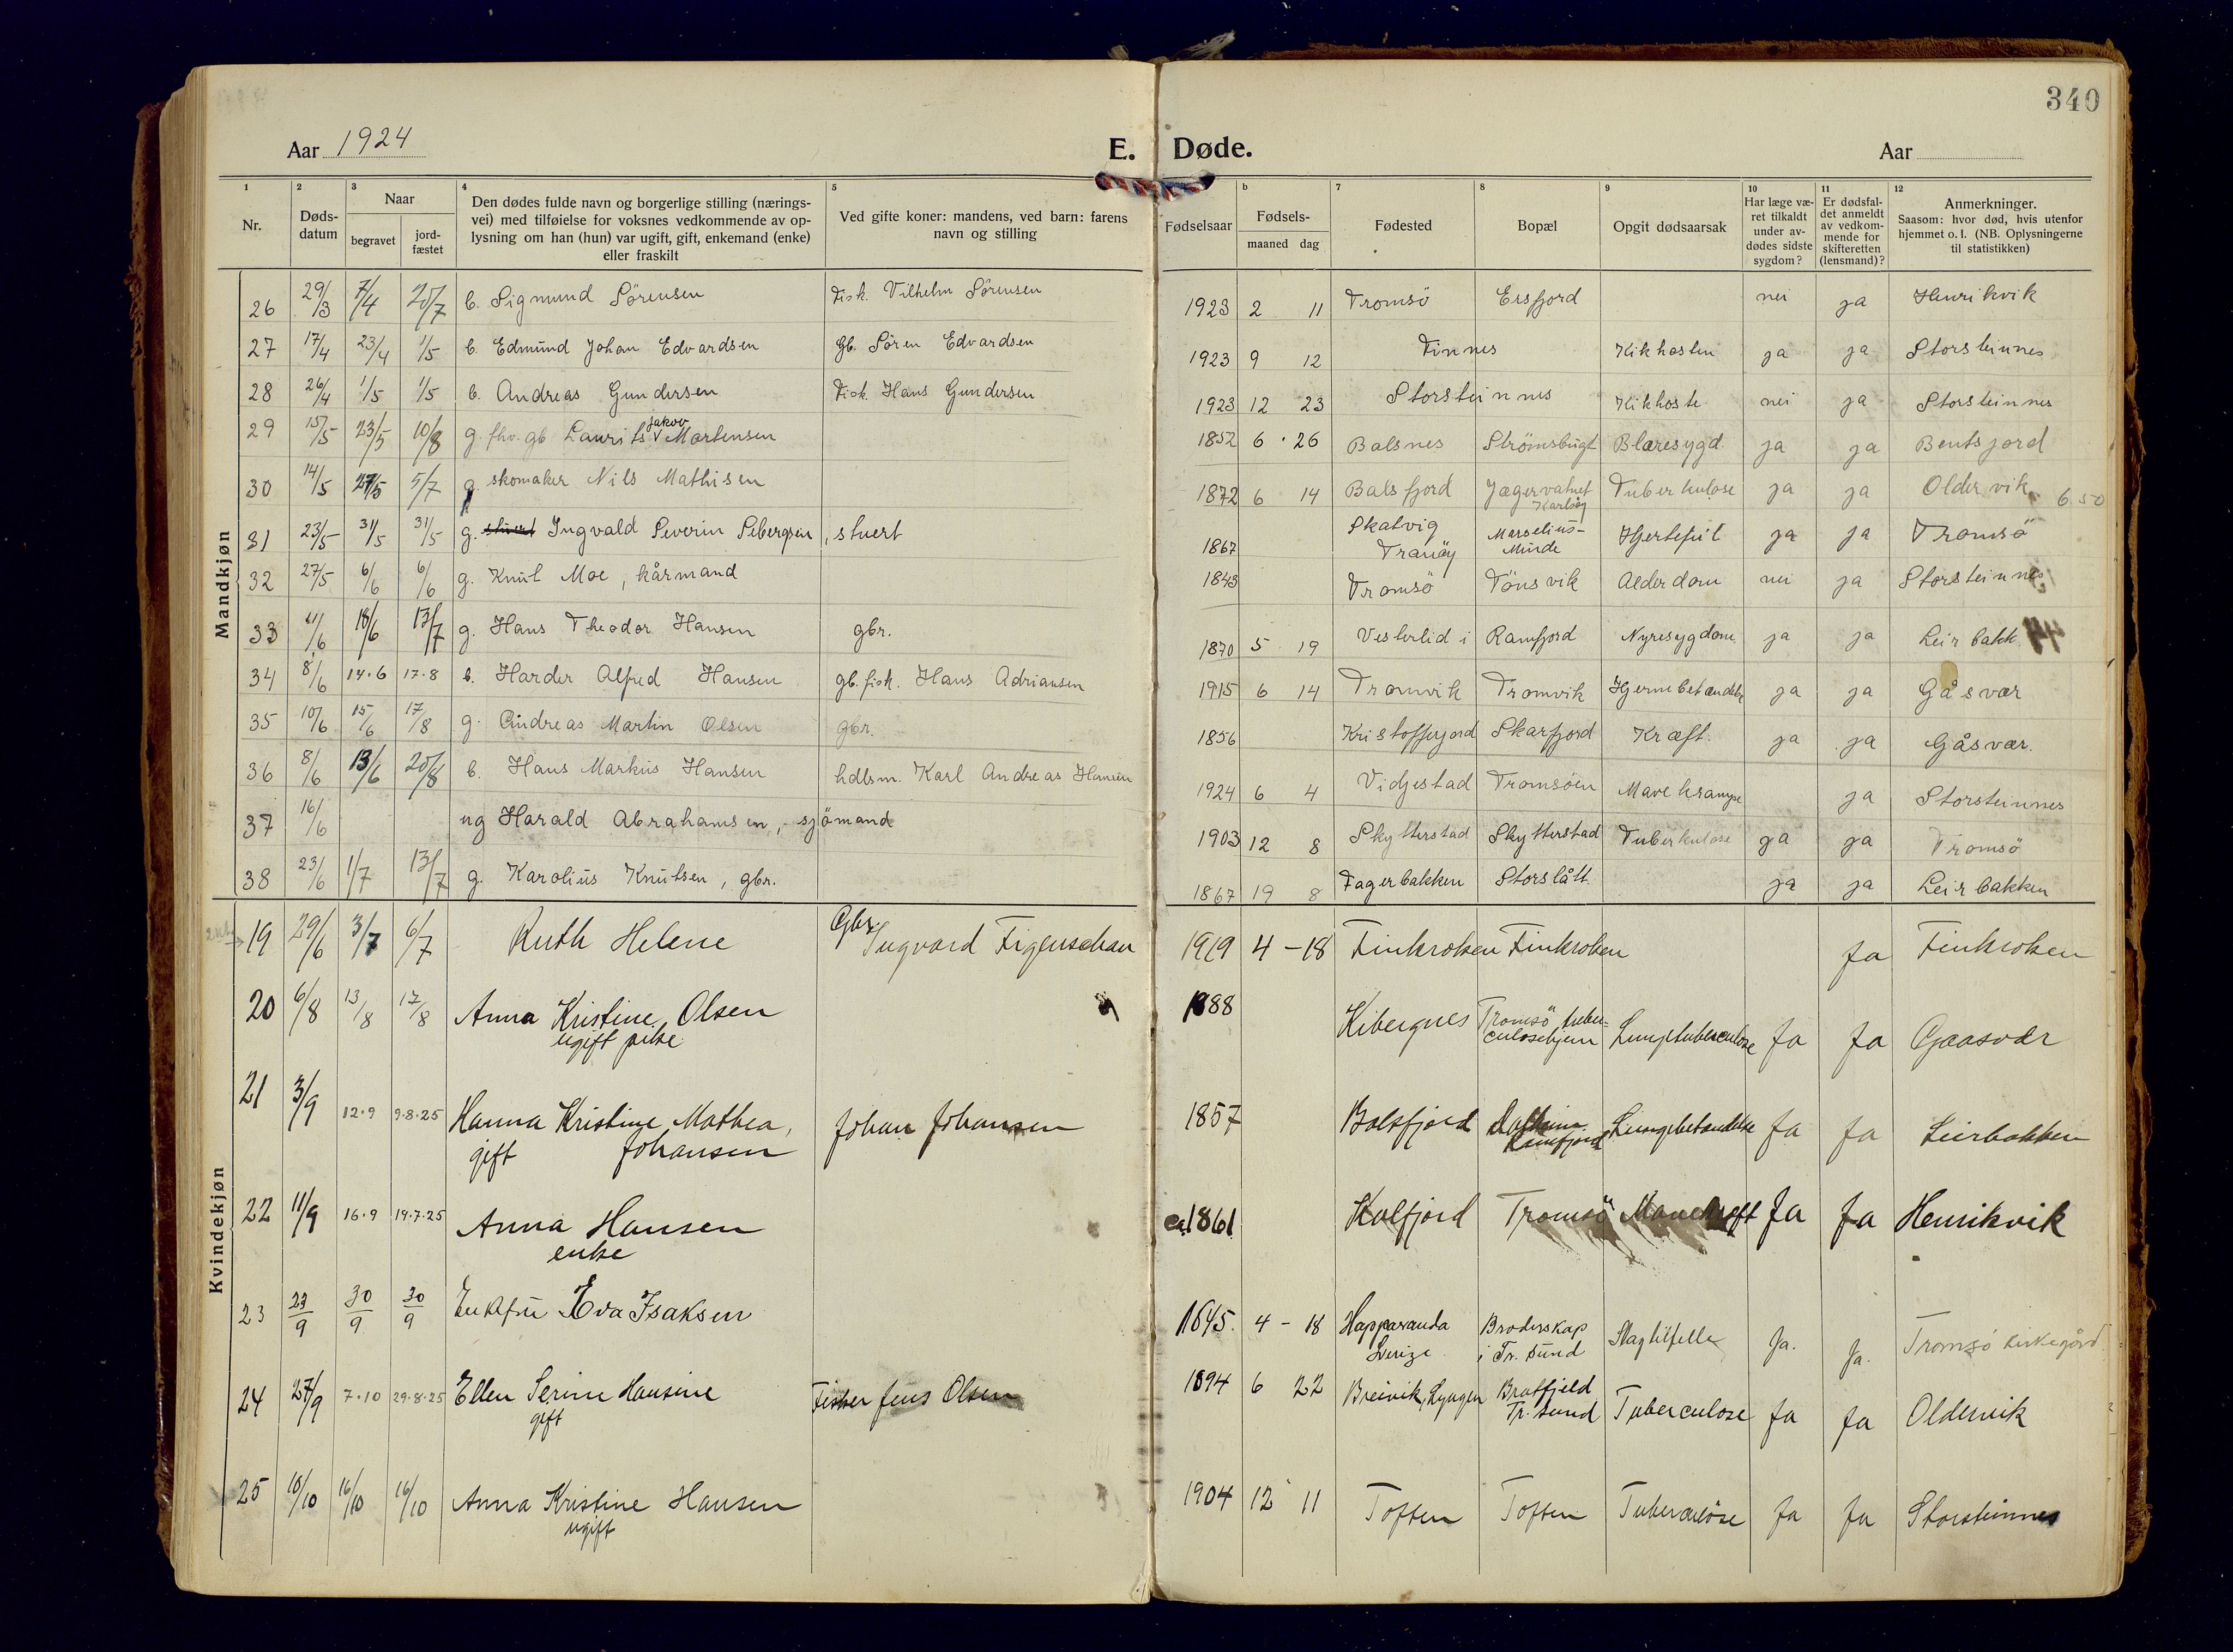 340
Aar 1924 E. Døde. Aar
1 2 3 4 5 6 7 8 9 10 11 12
Nr. Døds-datum Naar begravet jord-fæstet Den dødes fulde navn og borgerlige stilling (nærings-vei) med tilføielse for voksnes vedkommende av op-lysning om han (hun) var ugift, gift, enkemand (enke) eller fraskilt Ved gifte koner: mandens, ved barn: farens navn og stilling Fødselsaar Fødsels- maaned dag Fødested Bopæl Opgit dødsaarsak Har læge væ-ret tilkaldt under av-dødes sidste sygdom? Er dødsfal-det anmeldt av vedkom-mende for skifteretten (lensmand)? Anmerkninger. Saasom: hvor død, hvis utenfor hjemmet o. l. (NB. Oplysningerne til statistikken)
Mandkjøn
26 29/3 7/4 20/7 b. Sigmund Sörensen Fisk. Vilhelm Sörensen 1923 2 11 Tromsö Ersfjord nei ja Henrikvik
27 17/4 23/4 1/5 b. Edmund Johan Edvardsen Gb. Sören Edvardsen 1923 9 12 Finnes Kikhosten ja ja Storsteinnes
28 26/4 1/5 1/5 b. Andreas Gundersen Fisk. Hans Gundersen 1923 12 23 Storsteinnes Kikhoste nei ja Storsteinnes
29 15/5 23/5 10/8 g. fhv. gb Laurits Jakov Martensen 1852 6 26 Balsnes Strömsbugt Blæresygd. ja ja Bentsjord
30 14/5 27/5 5/7 g. skomaker Nils Mathisen 1872 6 14 Balsfjord Jægervatnet Karlsöy Tuberkulose ja ja Oldervik 6.50
31 23/5 31/5 31/5 g. stuert Ingvald Severin Sebergsen, stuert 1867 Skatvig Tranöy Marselius-Minde Hjertefeil ja ja Tromsö
32 27/5 6/6 6/6 g. Knut Moe, kårmand 1843 Tromsö Tönsvik Alderdom nei ja Storsteinnes
33 11/6 18/6 13/7 g. Hans Theodor Hansen gbr. 1870 5 19 Vesterlid i Ramfjord Nyresygdom ja ja Leirbakk
34 8/6 14.6 17.8 b. Harder Alfred Hansen gb. fisk. Hans Adriansen 1915 6 14 Tromvik Tromvik Hjernebetændelse ja ja Gåsvær
35 10/6 15/6 17/8 g. Andreas Martin Olsen gbr. 1856 Kristofferjord Skarfjord Kræft. ja ja Gåsvær.
36 8/6 13/6 20/8 b. Hans Markus Hansen hdlsm. Karl Andreas Hansen 1924 6 4 Vidjestad Tromsöen Mavekrampe ja Storsteinnes
37 16/6 ug Harald Abrahamsen, sjömand 1903 12 8 Skytterstad Skytterstad Tuberkulose ja ja Tromsö
38 23/6 1/7 13/7 g. Karolius Knutsen, gbr. 1867 19 8 Fagerbakken Storslått ja ja Leirbakken
Kvindekjøn
19 29/6 3/7 6/7 Ruth Helene Gbr. Ingvard Figenschau 1919 4-18 Finkroken Finkroken Ja Finkroken
20 6/8 13/8 17/8 Anna Kristine Olsen 1888 Kibergnes Tromsö tuber-culosehjem Lungetuberculose Ja Ja Gaasvær
ugift pike
21 3/9 12.9 9.8.25 Hanna Kristine Mathea, Johan Johansen 1857 Balsfjord Ramfjord Lungebetændelse Ja Ja Leirbakken
gift Johansen
22 11/9 16.9 19.7.25 Anna Hansen ca. 1861 Kalfjord Tromsö Mavekræft Ja Ja Henrikvik
enke
23 23/9 30/9 30/9 Enkefru Eva Isaksen 1845. 4-18 Happaranda Sverige Broderskap i Tr. sund Slagtilfelle Ja. Ja. Tromsö kirkegård.
24 27/9 7.10 29.8.25 Ellen Serine Hansine Fisker Jens Olsen 1894 6 22 Breivik, Lyngen Bratfjeld Tr. sund Tuberculose Ja Ja Oldervik
gift
25 10/10 16/10 16/10 Anna Kristine Hansen 1904 12 11 Toften Toften Tuberculose Ja Ja Storsteinnes
ugift